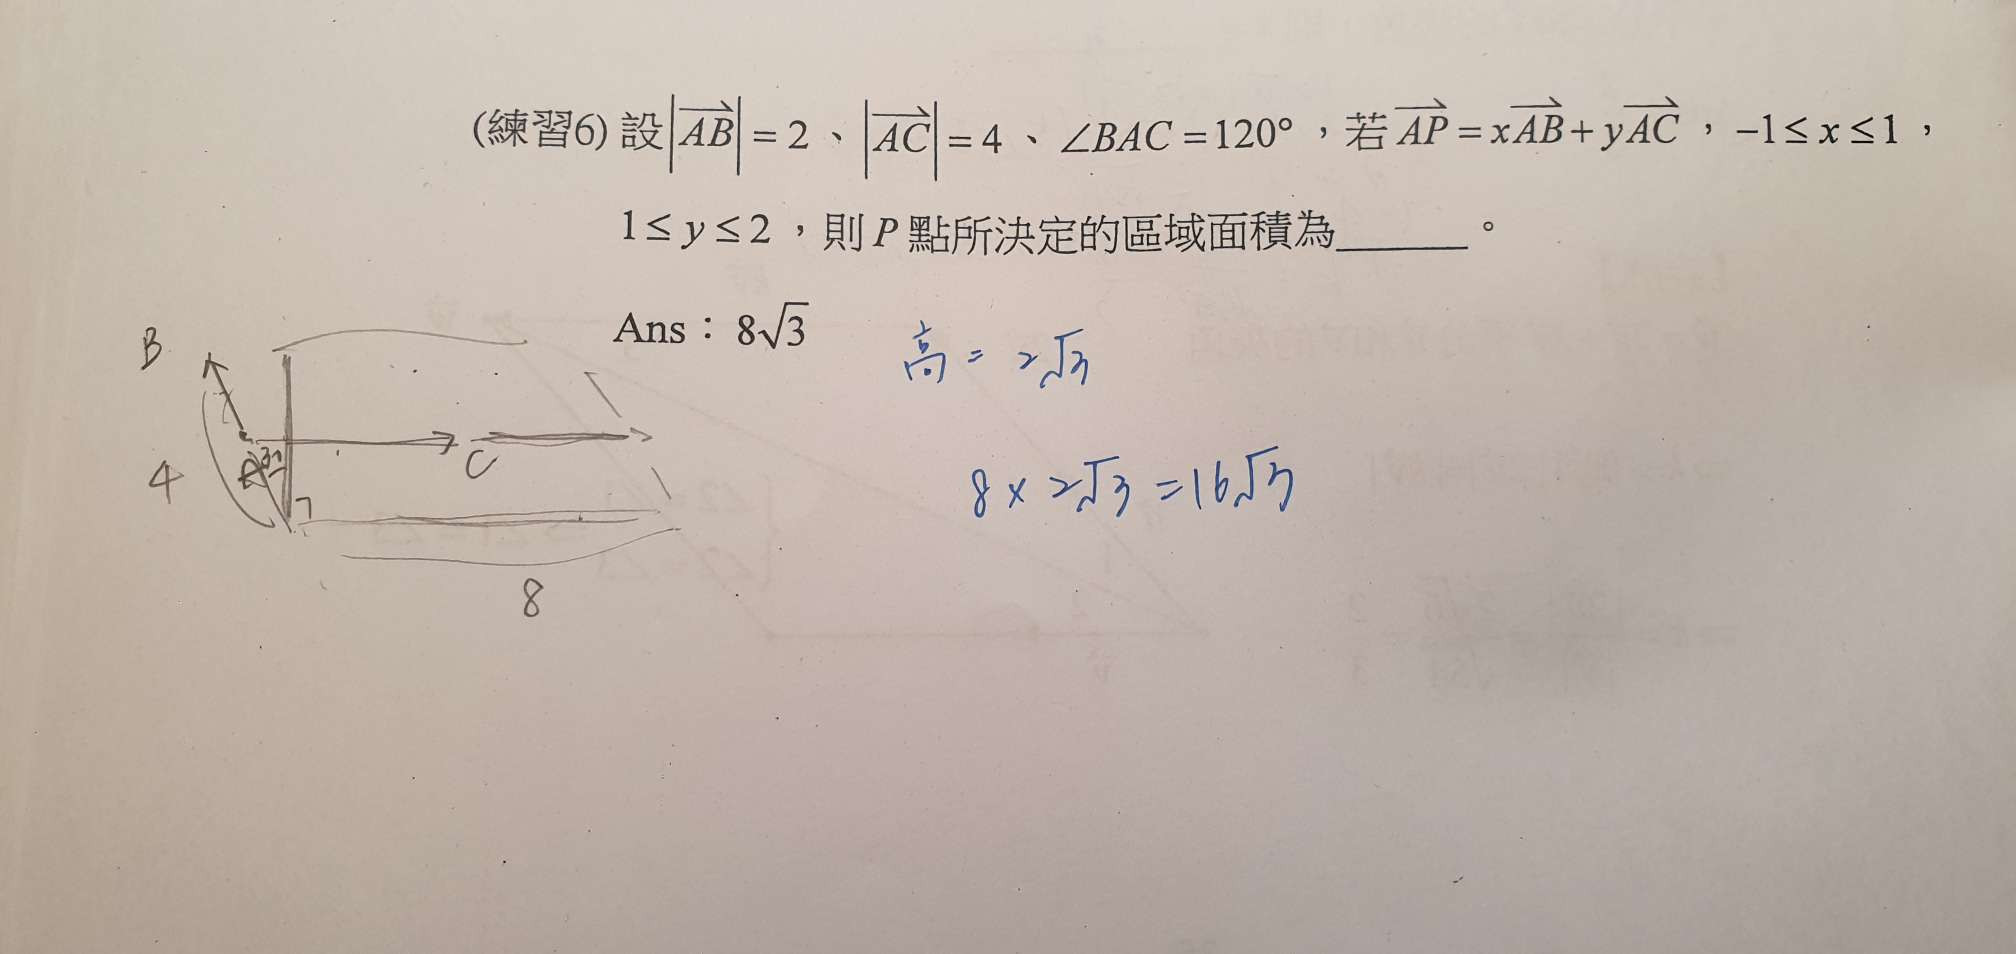 (練習6) 設|AB|=2、|AC|=4、∠BAC=120°,若 AP=xAB+yAC,-1≤x≤1,
1≤y≤2,則 P 點所決定的區域面積為______。
Ans:8√3
高=2√3
8×2√3=16√3
B
A
C
4
8